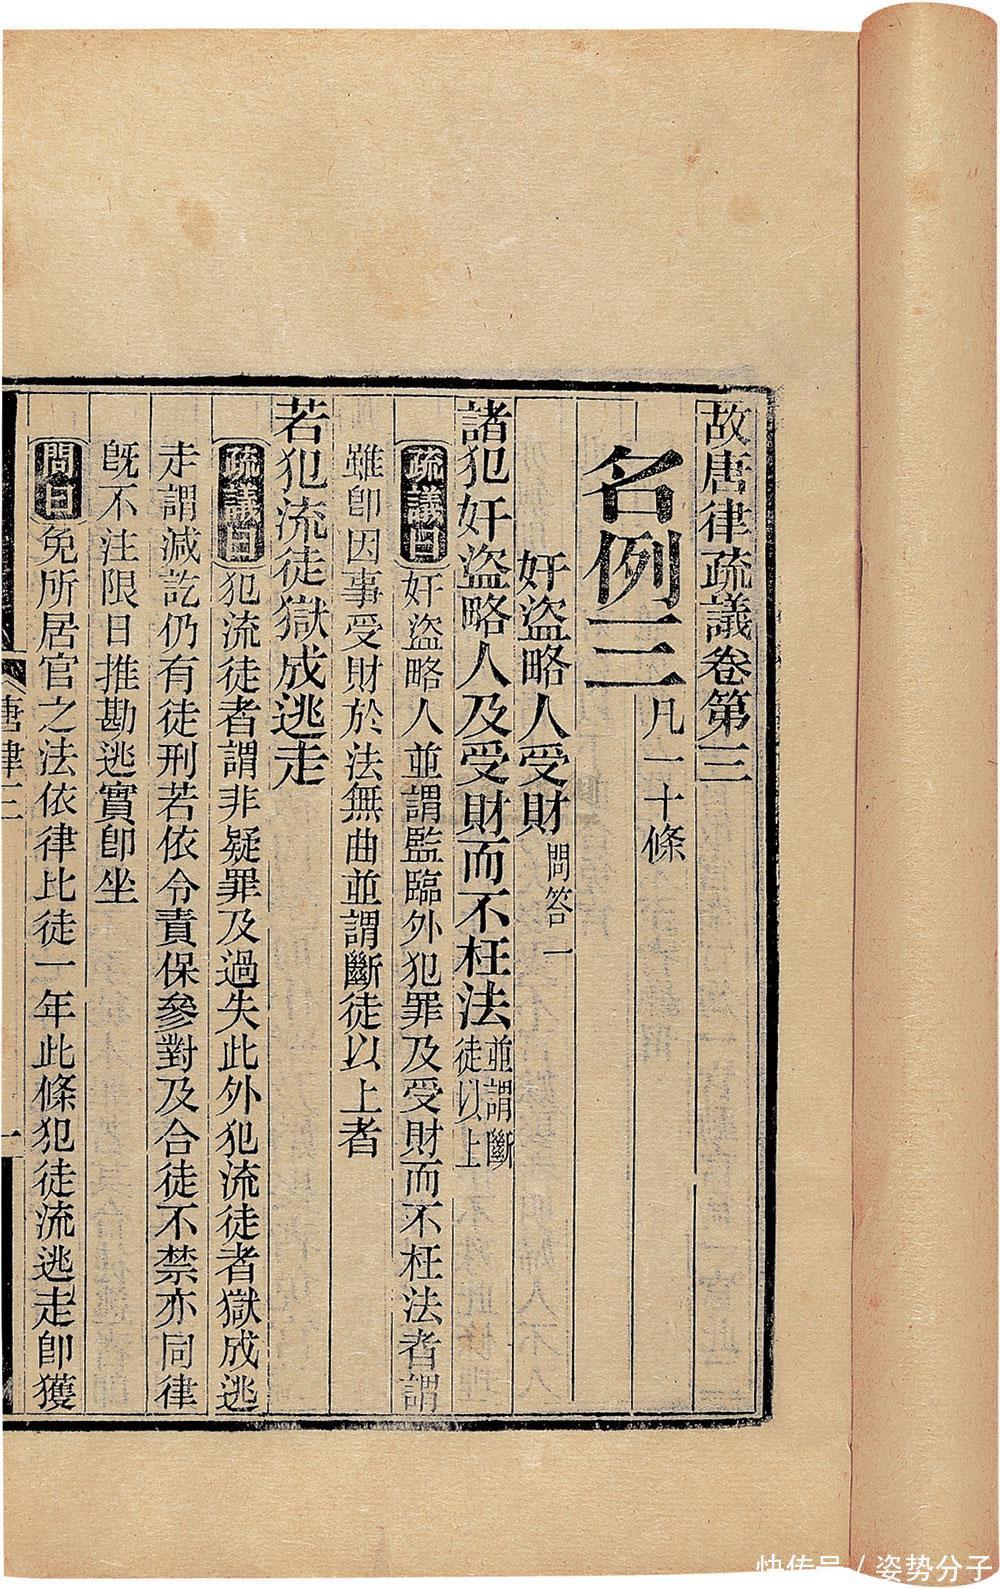 故唐律疏議卷第三
名例三凡一十條
奸盜略人受財問荅一
諸犯奸盜略人及受財而不枉法並謂斷徒以上
疏議曰奸盜略人並謂監臨外犯罪及受財而不枉法者謂
雖即因事受財於法無曲並謂斷徒以上者
若犯流徒獄成逃走
疏議曰犯流徒者謂非疑罪及過失此外犯流徒者獄成逃
走謂減訖仍有徒刑若依令責保參對及合徒不禁亦同律
既不注限日推勘逃實即坐
問曰免所居官之法依律比徒一年此條犯徒流逃走即獲
唐律三
一
快传号 / 姿势分子